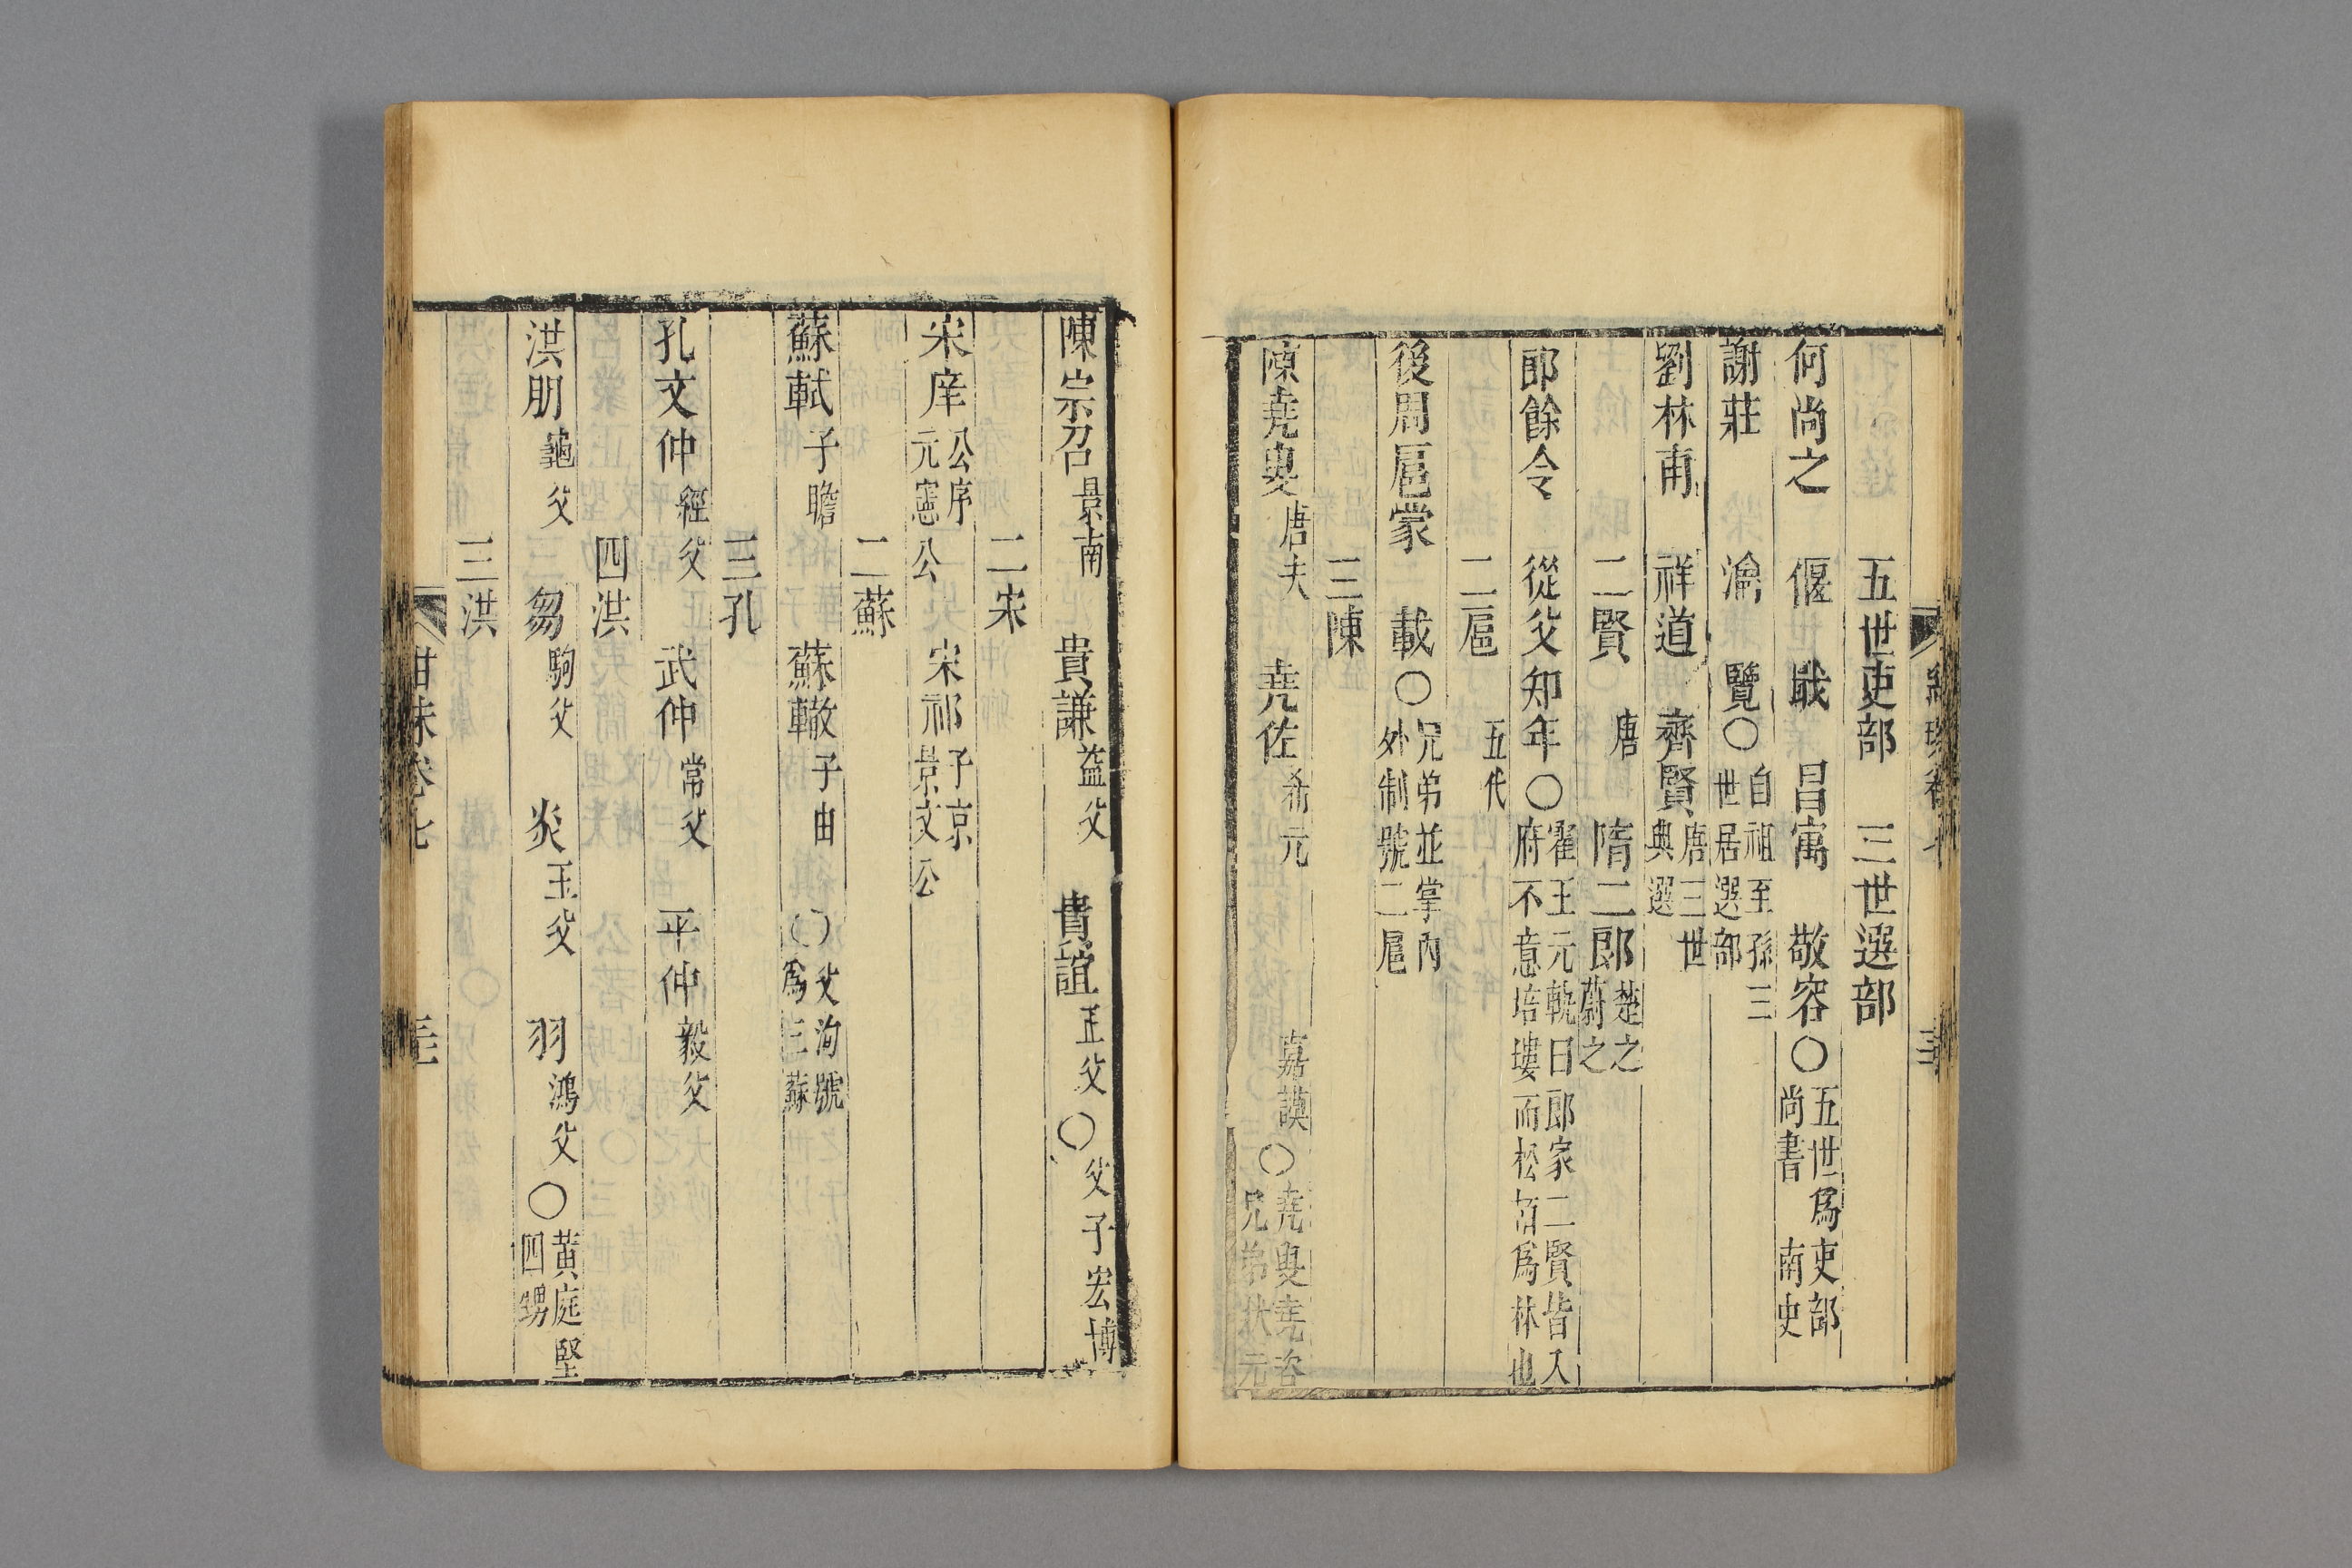 五世吏部　三世選部
何尚之　偃　戢　昌寓　敬容〇五世爲吏部尚書　南史
謝莊　瀹　覽〇自祖至孫三世居選部
劉林甫　祥道　齊賢唐三世典選
二賢唐　隋二郎楚之蔚之
郎餘令　從父知年〇霍王元軌曰郎家二賢皆入府不意培塿而松栢爲林也
二扈五代
後周扈蒙　載〇兄弟並掌內外制號二扈
三陳
陳堯叟唐夫　堯佐希元　嘉謨〇堯叟堯咨兄弟狀元
陳宗召景南　貴謙益父　貴誼正父〇父子宏博
二宋
宋庠公序元憲公　宋祁子京景文公
二蘇
蘇軾子瞻　蘇轍子由　〇父洵號爲三蘇
三孔
孔文仲經父　武仲常父　平仲毅父
四洪
洪朋龜父　芻駒父　炎玉父　羽鴻父〇黃庭堅四甥
三洪
紺珠卷七